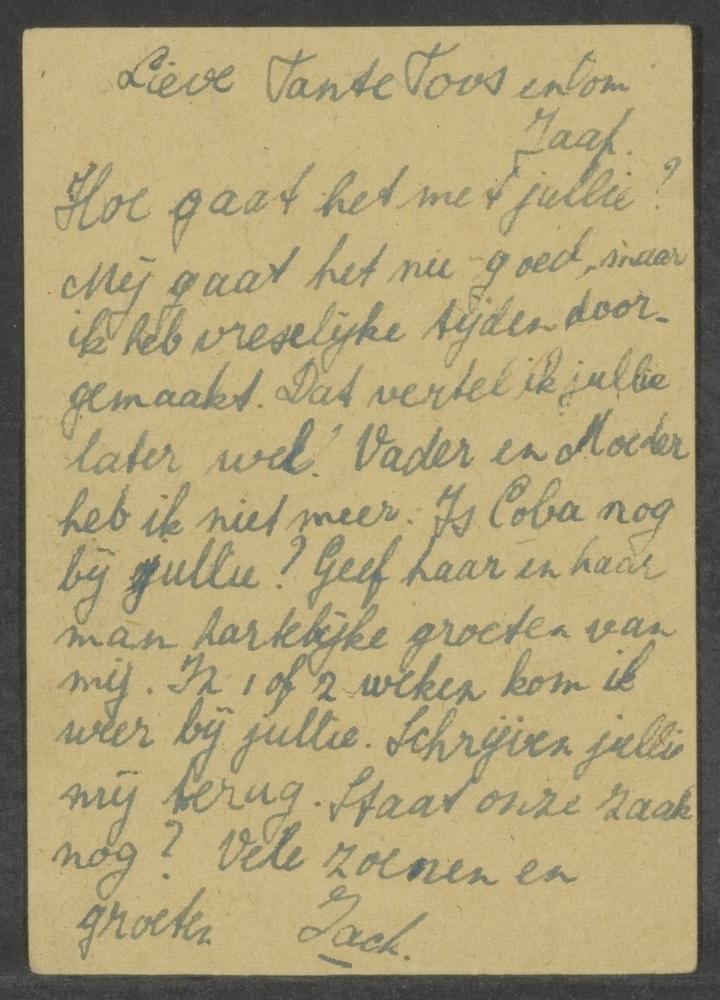 Lieve Tante Toos en Oom
Jaap.
Hoe gaat het met jullie?
Mij gaat het nu goed, maar
ik heb vreselijke tijden door-
gemaakt. Dat vertel ik jullie
later wel! Vader en Moeder
heb ik niet meer. Is Coba nog
bij jullie? Geef haar en haar
man hartelijke groeten van
mij. In 1 of 2 weken kom ik
weer bij jullie. Schrijven jullie
mij terug. Staat onze zaak
nog? Vele zoenen en
groeten Jack.